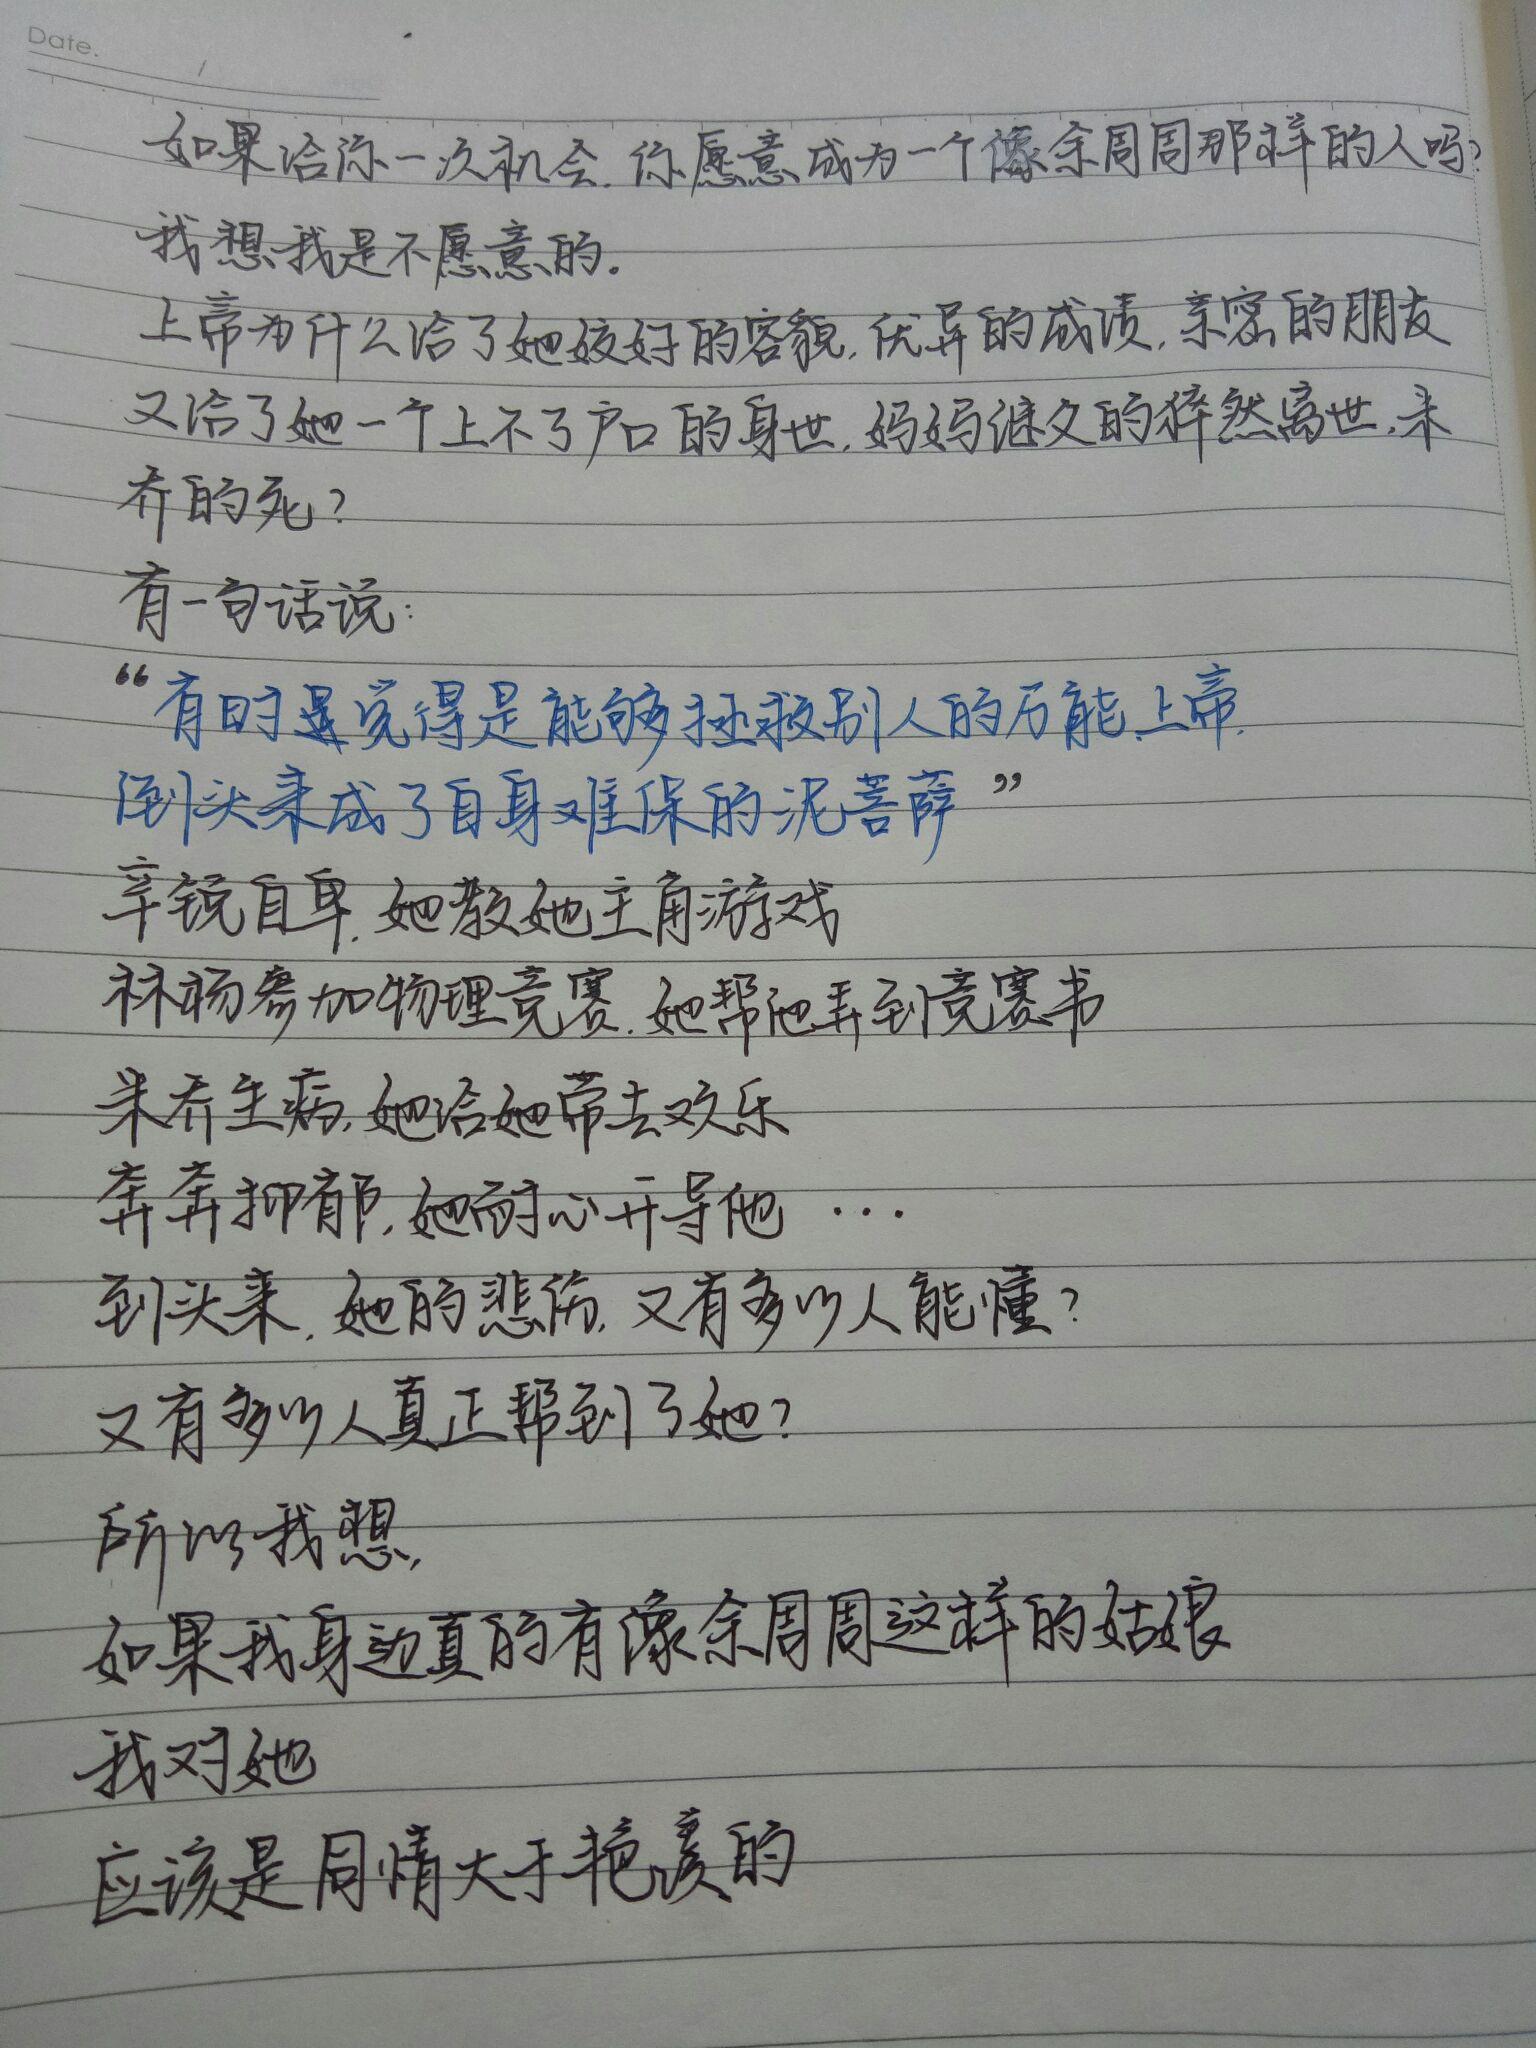 Date.
如果给你一次机会，你愿意成为一个像余周周那样的人吗？
我想我是不愿意的。
上帝为什么给了她姣好的容貌，优异的成绩，亲密的朋友
又给了她一个上不了户口的身世，妈妈继父的猝然离世，米
乔的死？
有一句话说：
“有时是觉得是能够拯救别人的万能上帝，
到头来成了自身难保的泥菩萨”
辛锐自卑，她教她主角游戏
林杨参加物理竞赛，她帮他弄到竞赛书
米乔生病，她给她带去欢乐
奔奔抑郁，她耐心开导他…
到头来，她的悲伤，又有多少人能懂？
又有多少人真正帮到了她？
所以我想，
如果我身边真的有像余周周这样的姑娘
我对她
应该是同情大于艳羡的